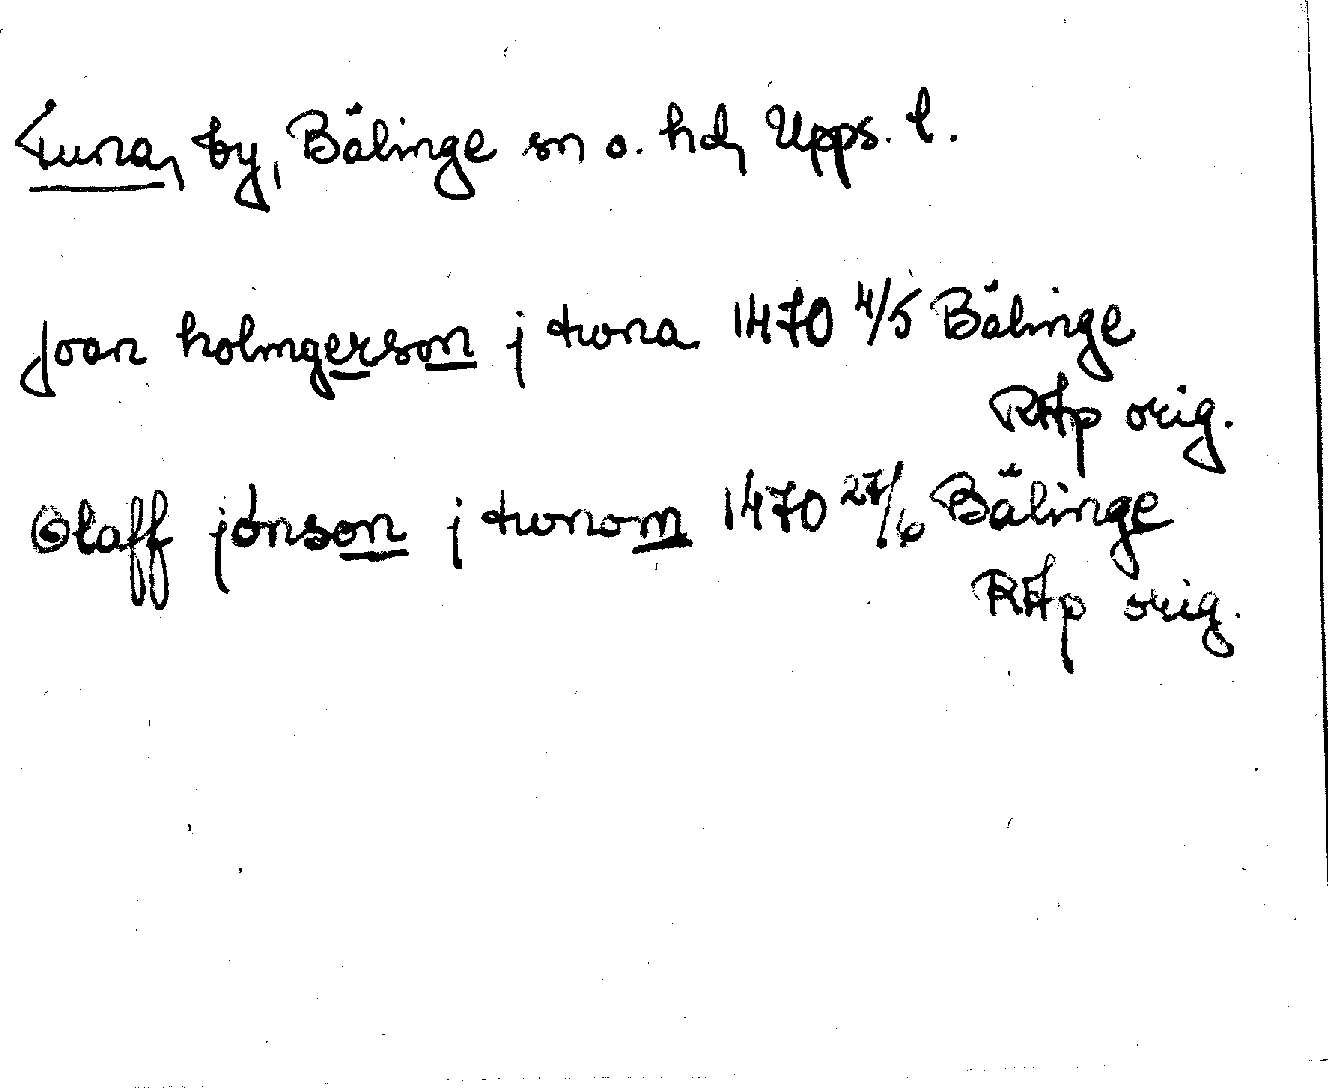 Tuna, by, Bälinge sn o. hd, Upps. l.
Joan holmgerson j twna 1470 4/5 Bälinge
RAp orig.
Olaff jönson j twnom 1470 27/6 Bälinge
RAp orig.